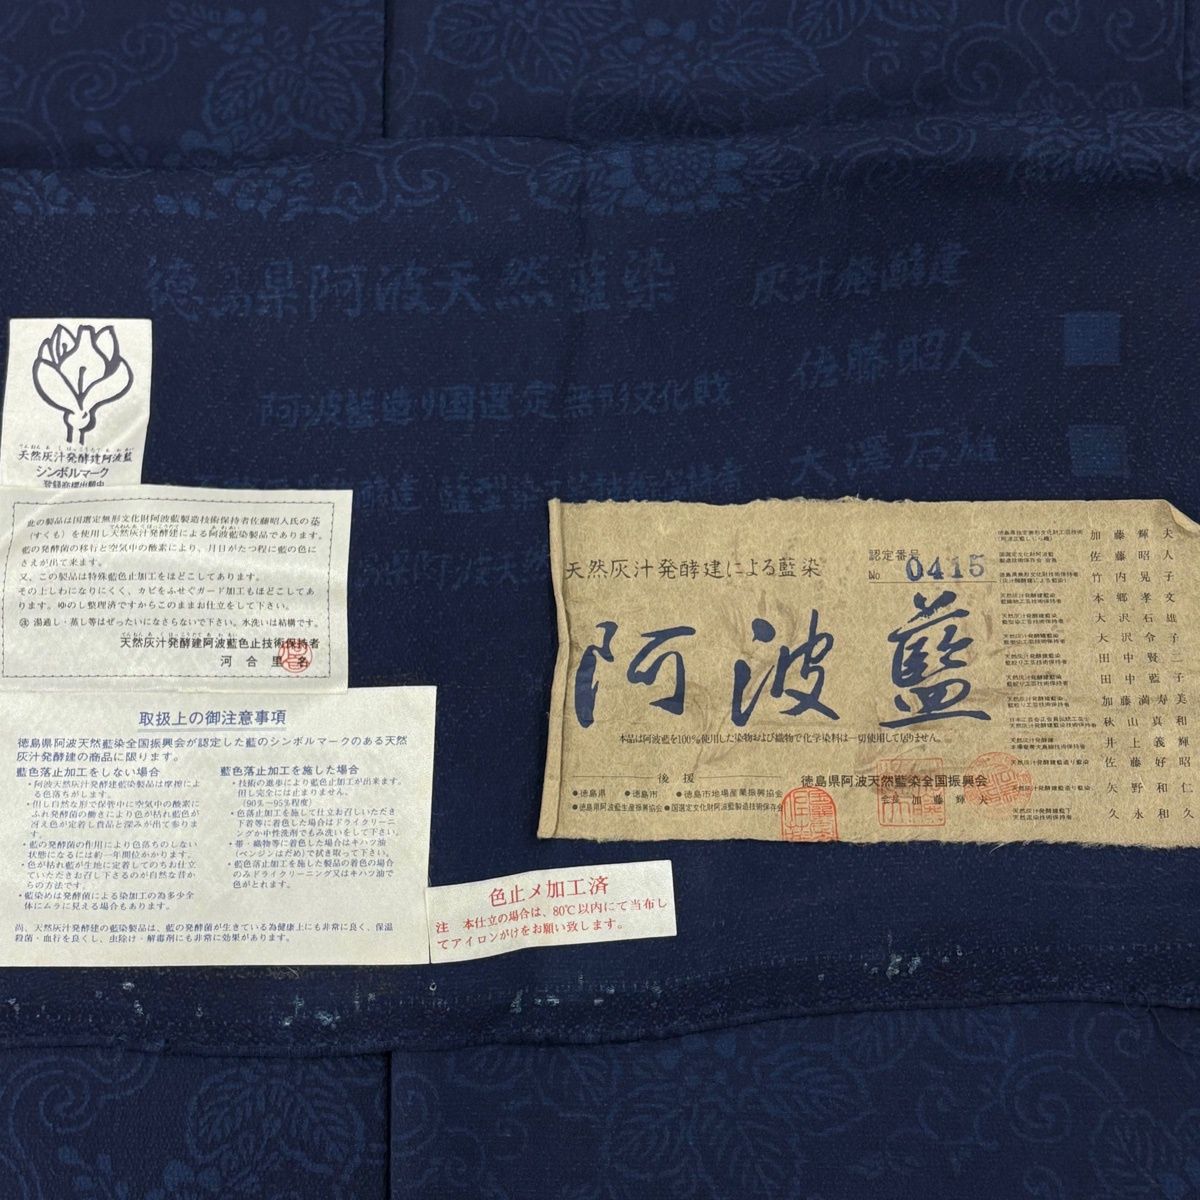 徳島県阿波天然藍染
灰汁発酵建
佐藤昭人
阿波藍造り国選定無形文化財
大澤石雄
天然灰汁発酵建阿波藍
シンボルマーク
登録商標出願中
此の製品は国選定無形文化財阿波藍製造技術保持者佐藤昭人氏の蒅
(すくも)を使用し天然灰汁発酵建による阿波藍染製品であります。
藍の発酵菌の移行と空気中の酸素により、月日がたつ程に藍の色に
さえが出て来ます。
又、この製品は特殊藍色止加工をほどこしてあります。
その上しわになりにくく、カビをふせぐガード加工もほどこしてあ
ります。ゆのし整理済ですからこのままお仕立をして下さい。
㊟ 湯通し・蒸し等はぜったいになさらないで下さい。水洗いは結構です。
天然灰汁発酵建阿波藍色止技術保持者
河合里名
取扱上の御注意事項
徳島県阿波天然藍染全国振興会が認定した藍のシンボルマークのある天然
灰汁発酵建の商品に限ります。
藍色落止加工をしない場合
・阿波天然灰汁発酵建藍染製品は摩擦によ
る色落ちがします。
・但し自然な形で保管中に空気中の酸素に
ふれ発酵菌の働きにより色が枯れ藍色が
冴え色が定着し作品と深みが出て参りま
す。
・藍の発酵菌の作用により色落ちのしない
状態になるには約一年間位かかります。
・色が枯れ藍が生地に定着してのちお仕立
ていただきお召し下さるのが自然な昔か
らの方法です。
・藍染めは発酵菌による染加工の為多少全
体にムラに見える場合もあります。
藍色落止加工を施した場合
・技術の進歩により藍色止加工が出来ます。
但し完全には止まりません。
(90%〜95%程度)
・色落止加工を施して仕立お召しいただき
下着等に着色した場合はドライクリーニ
ングか中性洗剤でもみ洗いをして下さい。
・帯・織物等に着色した場合はキハツ油
(ベンジンはだめ)で拭き取って下さい。
・藍色落止加工を施した製品の着色の場合
のみドライクリーニング又はキハツ油で
色がとれます。
尚、天然灰汁発酵建の藍染製品は、藍の発酵菌が生きている為健康上にも非常に良く、保温
殺菌・血行を良くし、虫除け・解毒剤にも非常に効果があります。
色止メ加工済
注 本仕立の場合は、80℃以内にて当布し
てアイロンがけをお願い致します。
天然灰汁発酵建による藍染
認定番号
No 0415
阿波藍
本品は阿波藍を100%使用した染物および織物で化学染料は一切使用して居りません。
後援
●徳島県 ●徳島市 ●徳島市地場産業振興協会
●徳島県阿波藍生産振興協会 ●国選定文化財阿波藍製造技術保存会
徳島県阿波天然藍染全国振興会
会長 加藤輝夫
加藤輝夫
佐藤昭人
竹内晃子
本郷孝文
大沢石雄
大沢令子
田中賢二
田中藍子
加藤満寿美
秋山真和
井上義輝
佐藤好昭
矢野和仁
久永和久